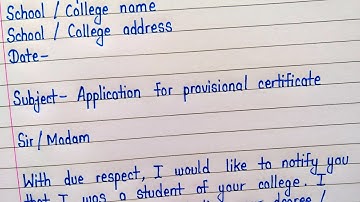 School / College name
School / College address
Date-
Subject- Application for provisional certificate
Sir/Madam
With due respect, I would like to notify you
that I was a student of your college. I
degree /